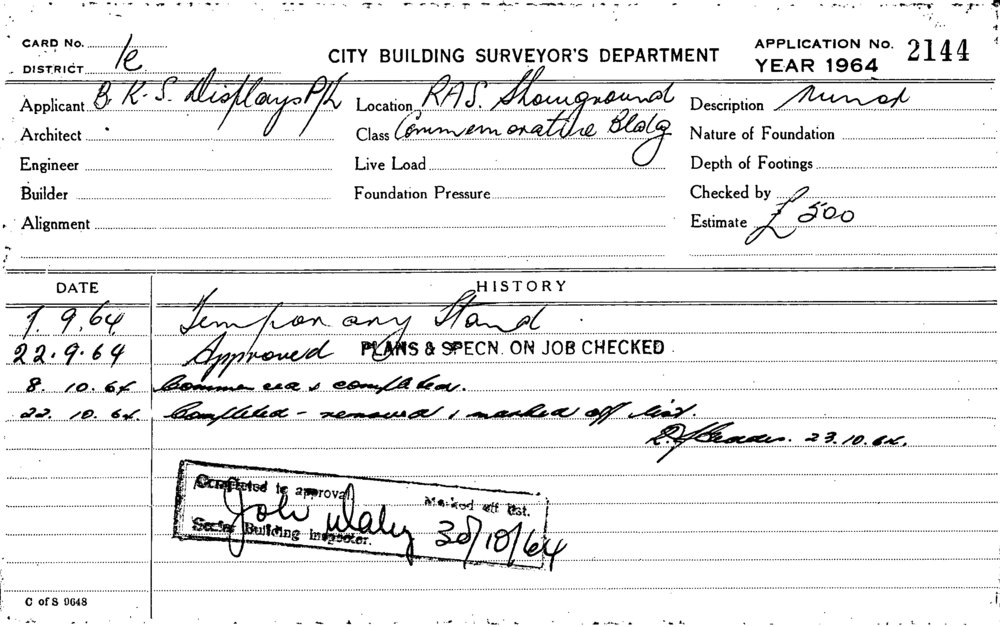 CARD No.
DISTRICT 1e
CITY BUILDING SURVEYOR'S DEPARTMENT
APPLICATION No. 2144
YEAR 1964
Applicant B.K.S. Displays P/L Location RAS. Showground Description Minor
Architect Class Commemorative Bldg Nature of Foundation
Engineer Live Load Depth of Footings
Builder Foundation Pressure Checked by
Alignment Estimate £500
DATE HISTORY
1.9.64 Temporary Stand
22.9.64 Approved PLANS & SPECN. ON JOB CHECKED
8.10.64 Commenced & completed.
22.10.64 Completed - removed & marked off list.
23.10.64.
Completed to approval Marked off list.
John Daley 30/10/64
Senior Building Inspector.
C of S 9648